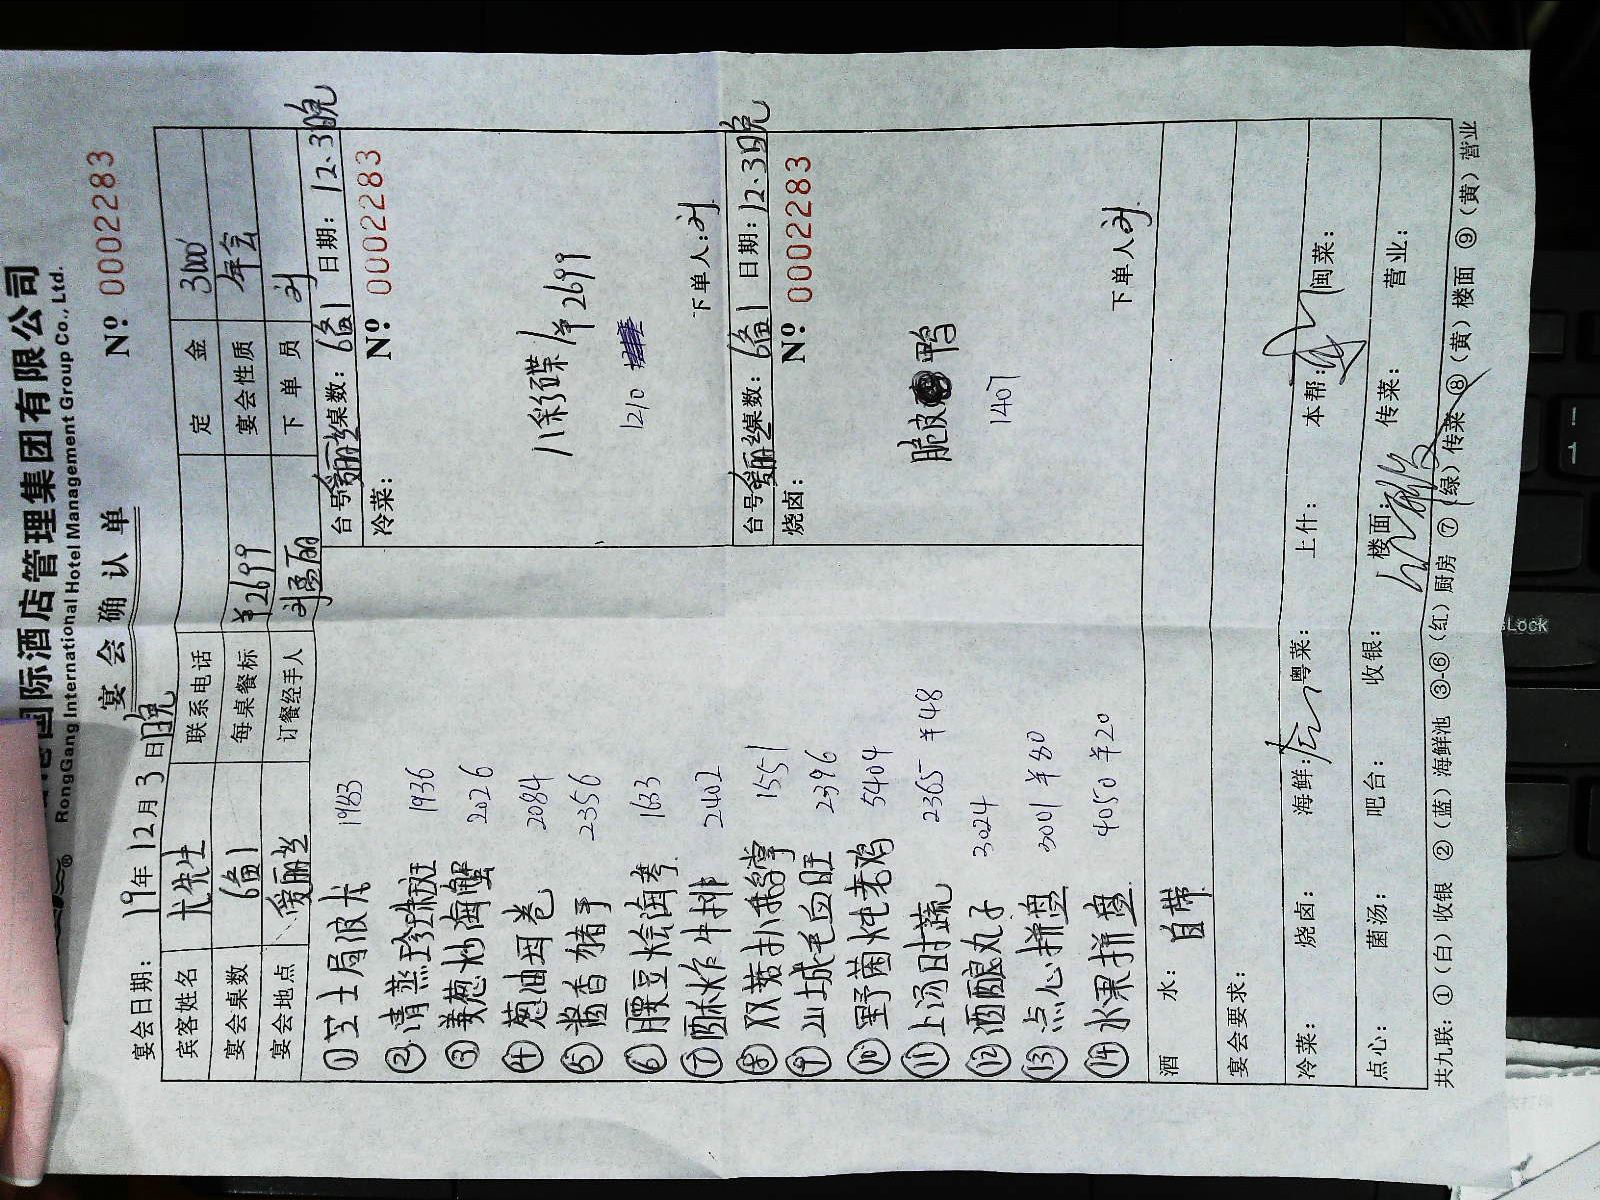 国际酒店管理集团有限公司
RongGang International Hotel Management Group Co., Ltd.
宴会确认单
№ 0002283
宴会日期: 19年12月3日晚
宾客姓名 尤先生 联系电话 定金 3000
宴会桌数 6备1 每桌餐标 ¥2699 宴会性质 年会
宴会地点 爱丽丝 订餐经手人 刘孟丽 下单员 刘
① 芝士焗波龙 1983
② 清蒸珍珠斑 1936
③ 姜葱炒海蟹 2026
④ 葱油 卷 2084
⑤ 酱香猪手 2356
⑥ 腰豆烩海参 1633
⑦ 酥炸牛排 2402
⑧ 双菇扒鹅掌 1551
⑨ 山城毛血旺 2396
⑩ 野菌炖老鸡 5404
⑪ 上汤时蔬 2365 ¥48
⑫ 酒酿丸子 3024
⑬ 点心拼盘 3001 ¥80
⑭ 水果拼盘 4050 ¥20
台号: 爱丽丝 桌数: 6备1 日期: 12.3晚
冷菜: № 0002283
八彩碟 1¥2699
1210
下单人: 刘
台号: 爱丽丝 桌数: 6备1 日期: 12.3晚
烧卤: № 0002283
脆皮鸭
1407
下单人 刘
酒水: 自带
宴会要求:
冷菜: 烧卤: 海鲜: 粤菜: 上什: 本帮: 闽菜:
点心: 菌汤: 吧台: 收银: 楼面: 传菜: 营业:
共九联: ①(白)收银 ②(蓝)海鲜池 ③-⑥(红)厨房 ⑦(绿)传菜 ⑧(黄)楼面 ⑨(黄)营业
Lock